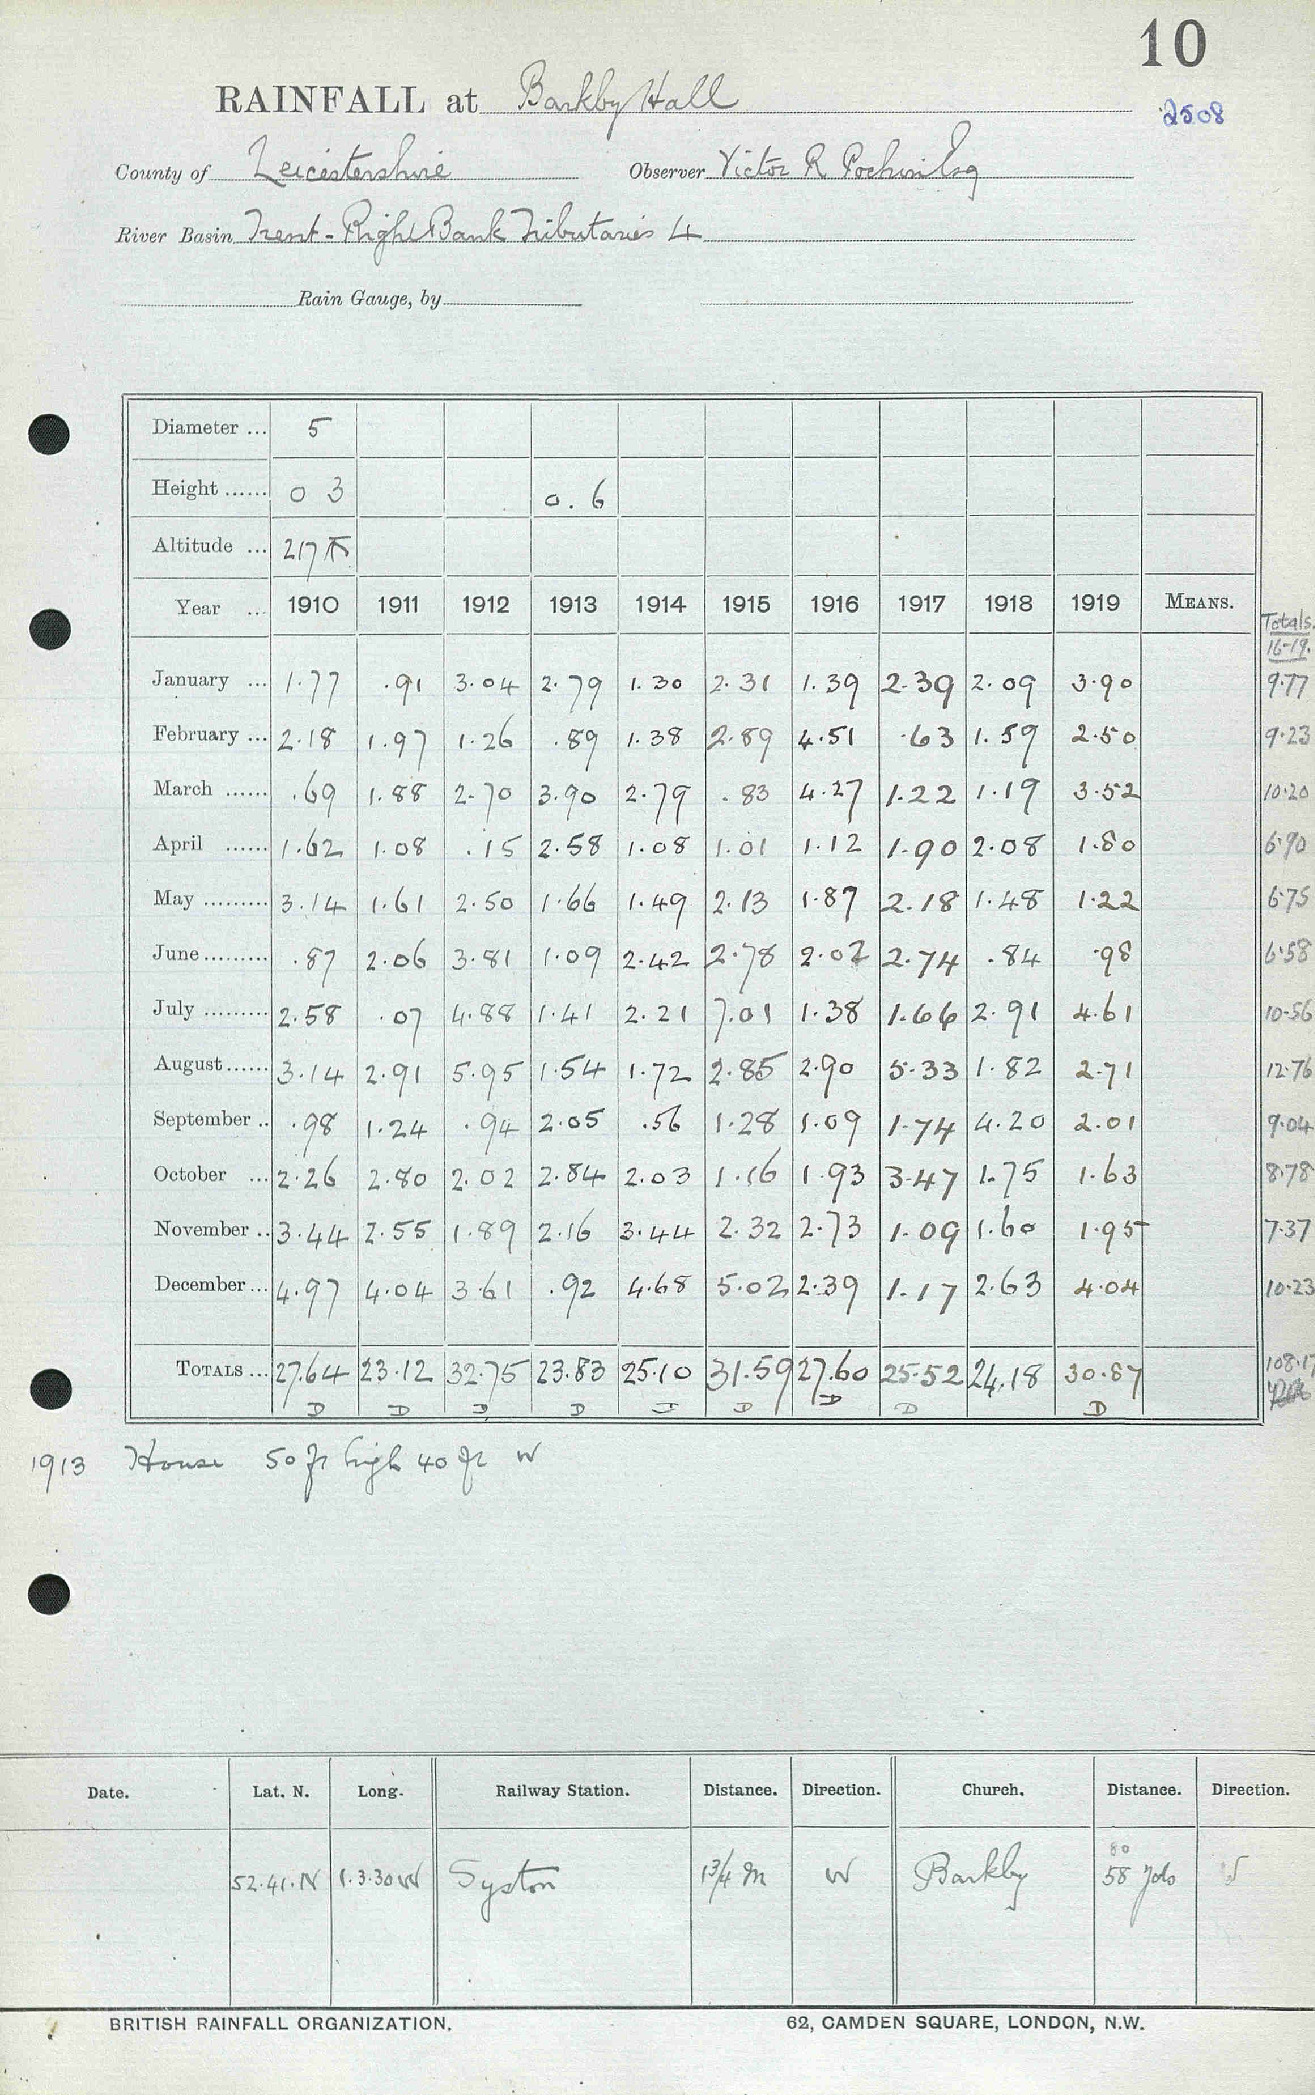 10
RAINFALL at Barkby Hall
2508
County of Leicestershire Observer Victor R Pochin Esq
River Basin Trent - Right Bank Tributaries 4
Rain Gauge, by
Diameter ... 5
Height ...... 0 3 0. 6
Altitude ... 217
Year ... 1910 1911 1912 1913 1914 1915 1916 1917 1918 1919 MEANS. Totals.
16-19.
January ... 1.77 .91 3.04 2.79 1.30 2.31 1.39 2.39 2.09 3.90 9.77
February ... 2.18 1.97 1.26 .89 1.38 2.89 4.51 .63 1.59 2.50 9.23
March ...... .69 1.88 2.70 3.90 2.79 .83 4.27 1.22 1.19 3.52 10.20
April ...... 1.62 1.08 .15 2.58 1.08 1.01 1.12 1.90 2.08 1.80 6.90
May ......... 3.14 1.61 2.50 1.66 1.49 2.13 1.87 2.18 1.48 1.22 6.75
June ......... .87 2.06 3.81 1.09 2.42 2.78 2.02 2.74 .84 .98 6.58
July ......... 2.58 .07 4.88 1.41 2.21 7.01 1.38 1.66 2.91 4.61 10.56
August ...... 3.14 2.91 5.95 1.54 1.72 2.85 2.90 5.33 1.82 2.71 12.76
September .. .98 1.24 .94 2.05 .56 1.28 1.09 1.74 4.20 2.01 9.04
October ... 2.26 2.80 2.02 2.84 2.03 1.16 1.93 3.47 1.75 1.63 8.78
November .. 3.44 2.55 1.89 2.16 3.44 2.32 2.73 1.09 1.60 1.95 7.37
December ... 4.97 4.04 3.61 .92 4.68 5.02 2.39 1.17 2.63 4.04 10.23
TOTALS ... 27.64 23.12 32.75 23.83 25.10 31.59 27.60 25.52 24.18 30.87 108.17
D D D D D D D D
1913 House 50 ft high 40 ft W
Date. Lat. N. Long. Railway Station. Distance. Direction. Church. Distance. Direction.
80
52.41.N 1.3.30 W Syston 1 3/4 m W Barkby 58 yds
BRITISH RAINFALL ORGANIZATION. 62, CAMDEN SQUARE, LONDON, N.W.